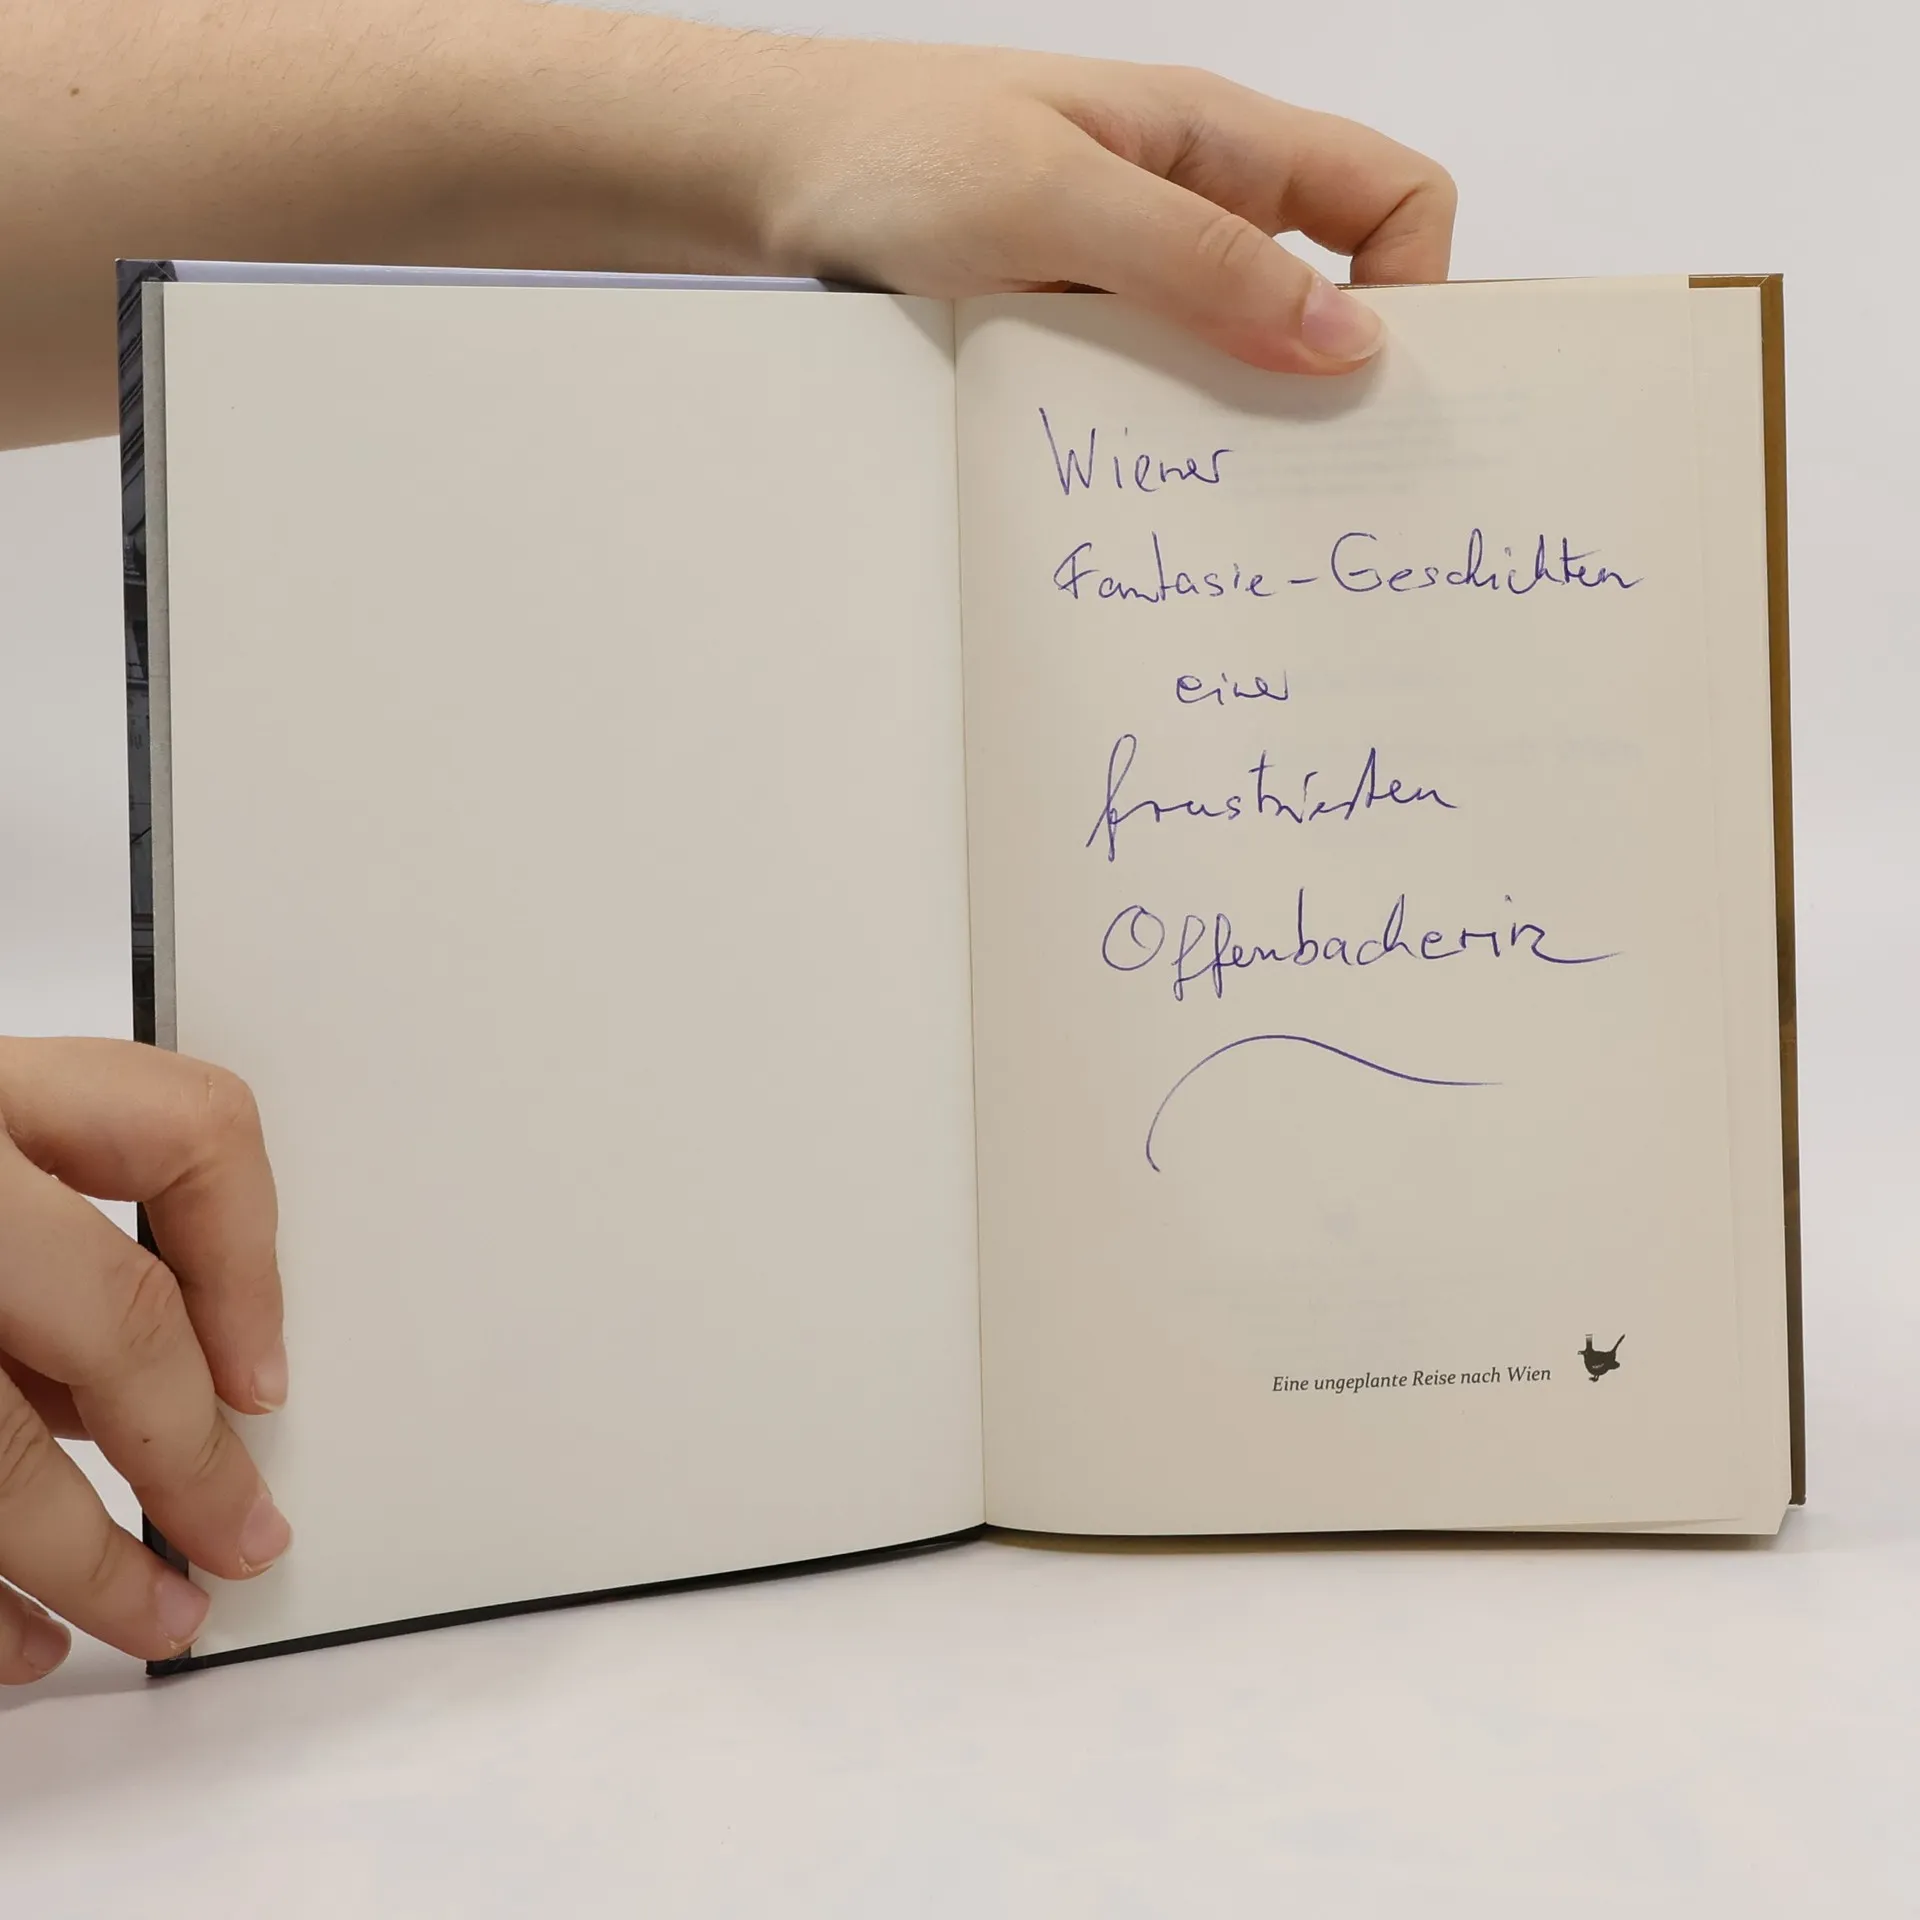 Wiener
Fantasie-Geschichten
einer
frustrierten
Offenbacherin
Eine ungeplante Reise nach Wien